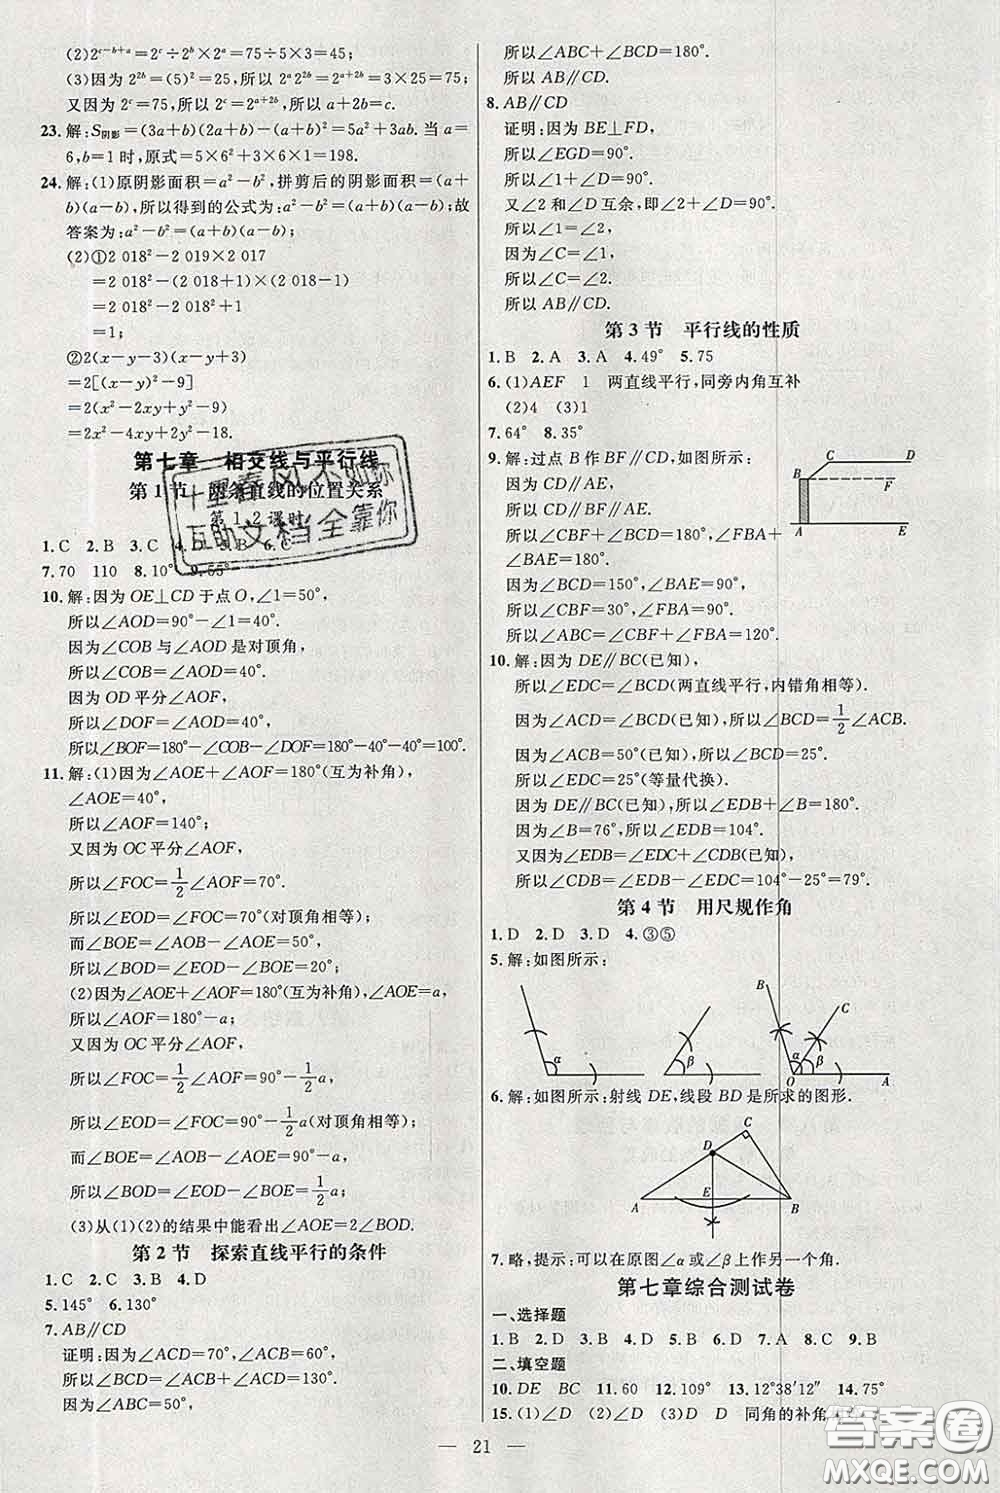 (2)2^{c-b+a}=2^c÷2^b×2^a=75÷5×3=45;
(3)因为 2^{2b}=(5)^2=25,所以 2^a2^{2b}=2^{a+2b}=3×25=75;
又因为 2^c=75,所以 2^c=2^{a+2b},所以 a+2b=c.
23.解:S阴影=(3a+b)(2a+b)-(a+b)²=5a²+3ab.当 a=
6,b=1 时,原式=5×6²+3×6×1=198.
24.解:(1)原阴影面积=a²-b²,拼剪后的阴影面积=(a+
b)(a-b),所以得到的公式为:a²-b²=(a+b)(a-b);故
答案为:a²-b²=(a+b)(a-b);
(2)①2 018²-2 019×2 017
=2 018²-(2 018+1)×(2 018-1)
=2 018²-2 018²+1
=1;
②2(x-y-3)(x-y+3)
=2[(x-y)²-9]
=2(x²-2xy+y²-9)
=2x²-4xy+2y²-18.
第七章 相交线与平行线
第1节 两条直线的位置关系
第1,2课时
1.C 2.B 3.C 4. 5.B 6.C
7.70 110 8.10° 9.55°
10.解:因为 OE⊥CD 于点 O,∠1=50°,
所以∠AOD=90°-∠1=40°.
因为∠COB 与∠AOD 是对顶角,
所以∠COB=∠AOD=40°.
因为 OD 平分∠AOF,
所以∠DOF=∠AOD=40°,
所以∠BOF=180°-∠COB-∠DOF=180°-40°-40°=100°.
11.解:(1)因为∠AOE+∠AOF=180°(互为补角),
∠AOE=40°,
所以∠AOF=140°;
又因为 OC 平分∠AOF,
所以∠FOC=1/2∠AOF=70°.
所以∠EOD=∠FOC=70°(对顶角相等);
而∠BOE=∠AOB-∠AOE=50°,
所以∠BOD=∠EOD-∠BOE=20°;
(2)因为∠AOE+∠AOF=180°(互为补角),∠AOE=a,
所以∠AOF=180°-a;
又因为 OC 平分∠AOF,
所以∠FOC=1/2∠AOF=90°-1/2a,
所以∠EOD=∠FOC=90°-1/2a(对顶角相等);
而∠BOE=∠AOB-∠AOE=90°-a,
所以∠BOD=∠EOD-∠BOE=1/2a;
(3)从(1)(2)的结果中能看出∠AOE=2∠BOD.
第2节 探索直线平行的条件
1.C 2.C 3.B 4.D
5.145° 6.130°
7.AB∥CD
证明:因为∠ACD=70°,∠ACB=60°,
所以∠BCD=∠ACB+∠ACD=130°.
因为∠ABC=50°,
所以∠ABC+∠BCD=180°.
所以 AB∥CD.
8.AB∥CD
证明:因为 BE⊥FD,
所以∠EGD=90°.
所以∠1+∠D=90°.
又∠2 和∠D 互余,即∠2+∠D=90°.
所以∠1=∠2,
因为∠C=∠1,
所以∠C=∠2.
所以 AB∥CD.
第3节 平行线的性质
1.B 2.A 3.A 4.49° 5.75
6.(1)AEF 1 两直线平行,同旁内角互补
(2)4 (3)1
7.64° 8.35°
9.解:过点 B 作 BF∥CD,如图所示:
因为 CD∥AE,
所以 CD∥BF∥AE.
所以∠CBF+∠BCD=180°,∠FBA+
∠BAE=180°.
因为∠BCD=150°,∠BAE=90°,
所以∠CBF=30°,∠FBA=90°.
所以∠ABC=∠CBF+∠FBA=120°.
C D
B F
A E
10.解:因为 DE∥BC(已知),
所以∠EDC=∠BCD(两直线平行,内错角相等).
因为∠ACD=∠BCD(已知),所以∠BCD=1/2∠ACB.
因为∠ACB=50°(已知),所以∠BCD=25°.
所以∠EDC=25°(等量代换).
因为 DE∥BC(已知),所以∠EDB+∠B=180°.
因为∠B=76°,所以∠EDB=104°.
又因为∠EDB=∠EDC+∠CDB(已知),
所以∠CDB=∠EDB-∠EDC=104°-25°=79°.
第4节 用尺规作角
1.D 2.D 3.D 4.③⑤
5.解:如图所示:
α β B C α β O A
6.解:如图所示:射线 DE,线段 BD 是所求的图形.
C
D
A E B
7.略,提示:可以在原图∠α或∠β上作另一个角.
第七章综合测试卷
一、选择题
1.B 2.D 3.C 4.B 5.D 6.D 7.A 8.C 9.B
二、填空题
10.DE BC 11.60 12.109° 13.12°38′12″ 14.75°
15.(1)∠D (2)∠D (3)D D 同角的补角
— 21 —
十里春风不如你
互助文档全靠你
答案圈
MXQE.COM